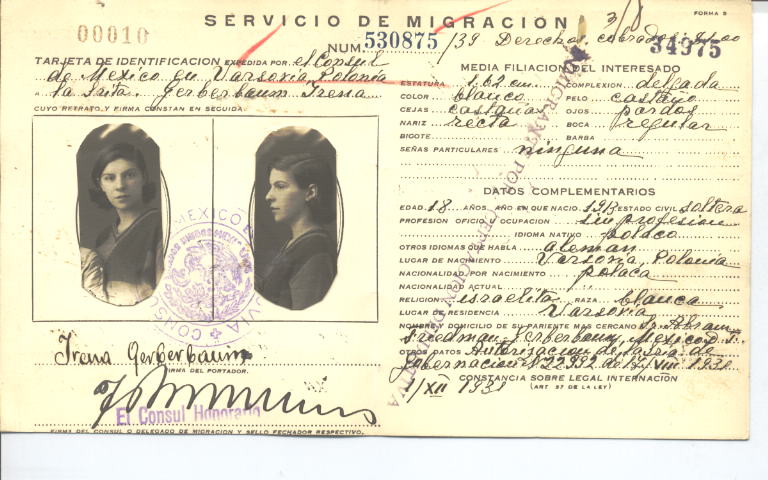 SERVICIO DE MIGRACION
FORMA 5
00010
NUM. 530875/39 Derechos cobrados
34975
TARJETA DE IDENTIFICACION EXPEDIDA POR el Consul
de Mexico en Varsovia, Polonia
la Srita. Gerberbaum Irena
CUYO RETRATO Y FIRMA CONSTAN EN SEGUIDA:
Irena Gerberbaum
FIRMA DEL PORTADOR.
El Consul Honorario
FIRMA DEL CONSUL O DELEGADO DE MIGRACION Y SELLO FECHADOR RESPECTIVO.
MEDIA FILIACION DEL INTERESADO
ESTATURA 1.62 cm. COMPLEXION delgada
COLOR blanco PELO castaño
CEJAS castañas OJOS pardos
NARIZ recta BOCA regular
BIGOTE BARBA
SEÑAS PARTICULARES ninguna
DATOS COMPLEMENTARIOS
EDAD 18 AÑOS. AÑO EN QUE NACIO 1913 ESTADO CIVIL soltera
PROFESION OFICIO U OCUPACION sin profesion
IDIOMA NATIVO polaco
OTROS IDIOMAS QUE HABLA aleman
LUGAR DE NACIMIENTO Varsovia, Polonia
NACIONALIDAD POR NACIMIENTO polaca
NACIONALIDAD ACTUAL "
RELIGION israelita RAZA blanca
LUGAR DE RESIDENCIA Varsovia
NOMBRE Y DOMICILIO DE SU PARIENTE MAS CERCANO Sr. Abram
Friedman Gerberbaum, Mexico D. F.
OTROS DATOS Autorizacion de la Sria. de
Gobernacion # 22992 de 17/VIII 1931
CONSTANCIA SOBRE LEGAL INTERNACION
(ART 57 DE LA LEY)
1/XII 1931